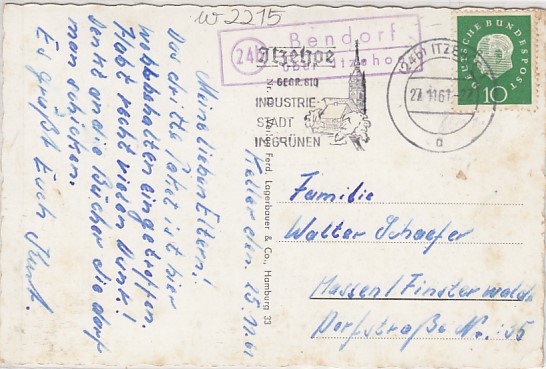 W 2215
(24b) Bendorf
über Itzehoe
Itzehoe
GEGR. 810
INDUSTRIE-
STADT
IM GRÜNEN
(24b) ITZEHOE
27.11.61
a
DEUTSCHE BUNDESPOST
10
Keller den 25.11.61
Meine lieben Eltern!
Das dritte Paket ist hier
wohlbehalten eingetroffen.
Habt recht vielen Dank!
Denkt an die Bücher die darf
man schicken.
Es grüßt Euch Kurt.
Verlag Ferd. Lagerbauer & Co., Hamburg 33
Familie
Walter Schaefer
Massen/Finsterwalde
Dorfstraße Nr.: 35